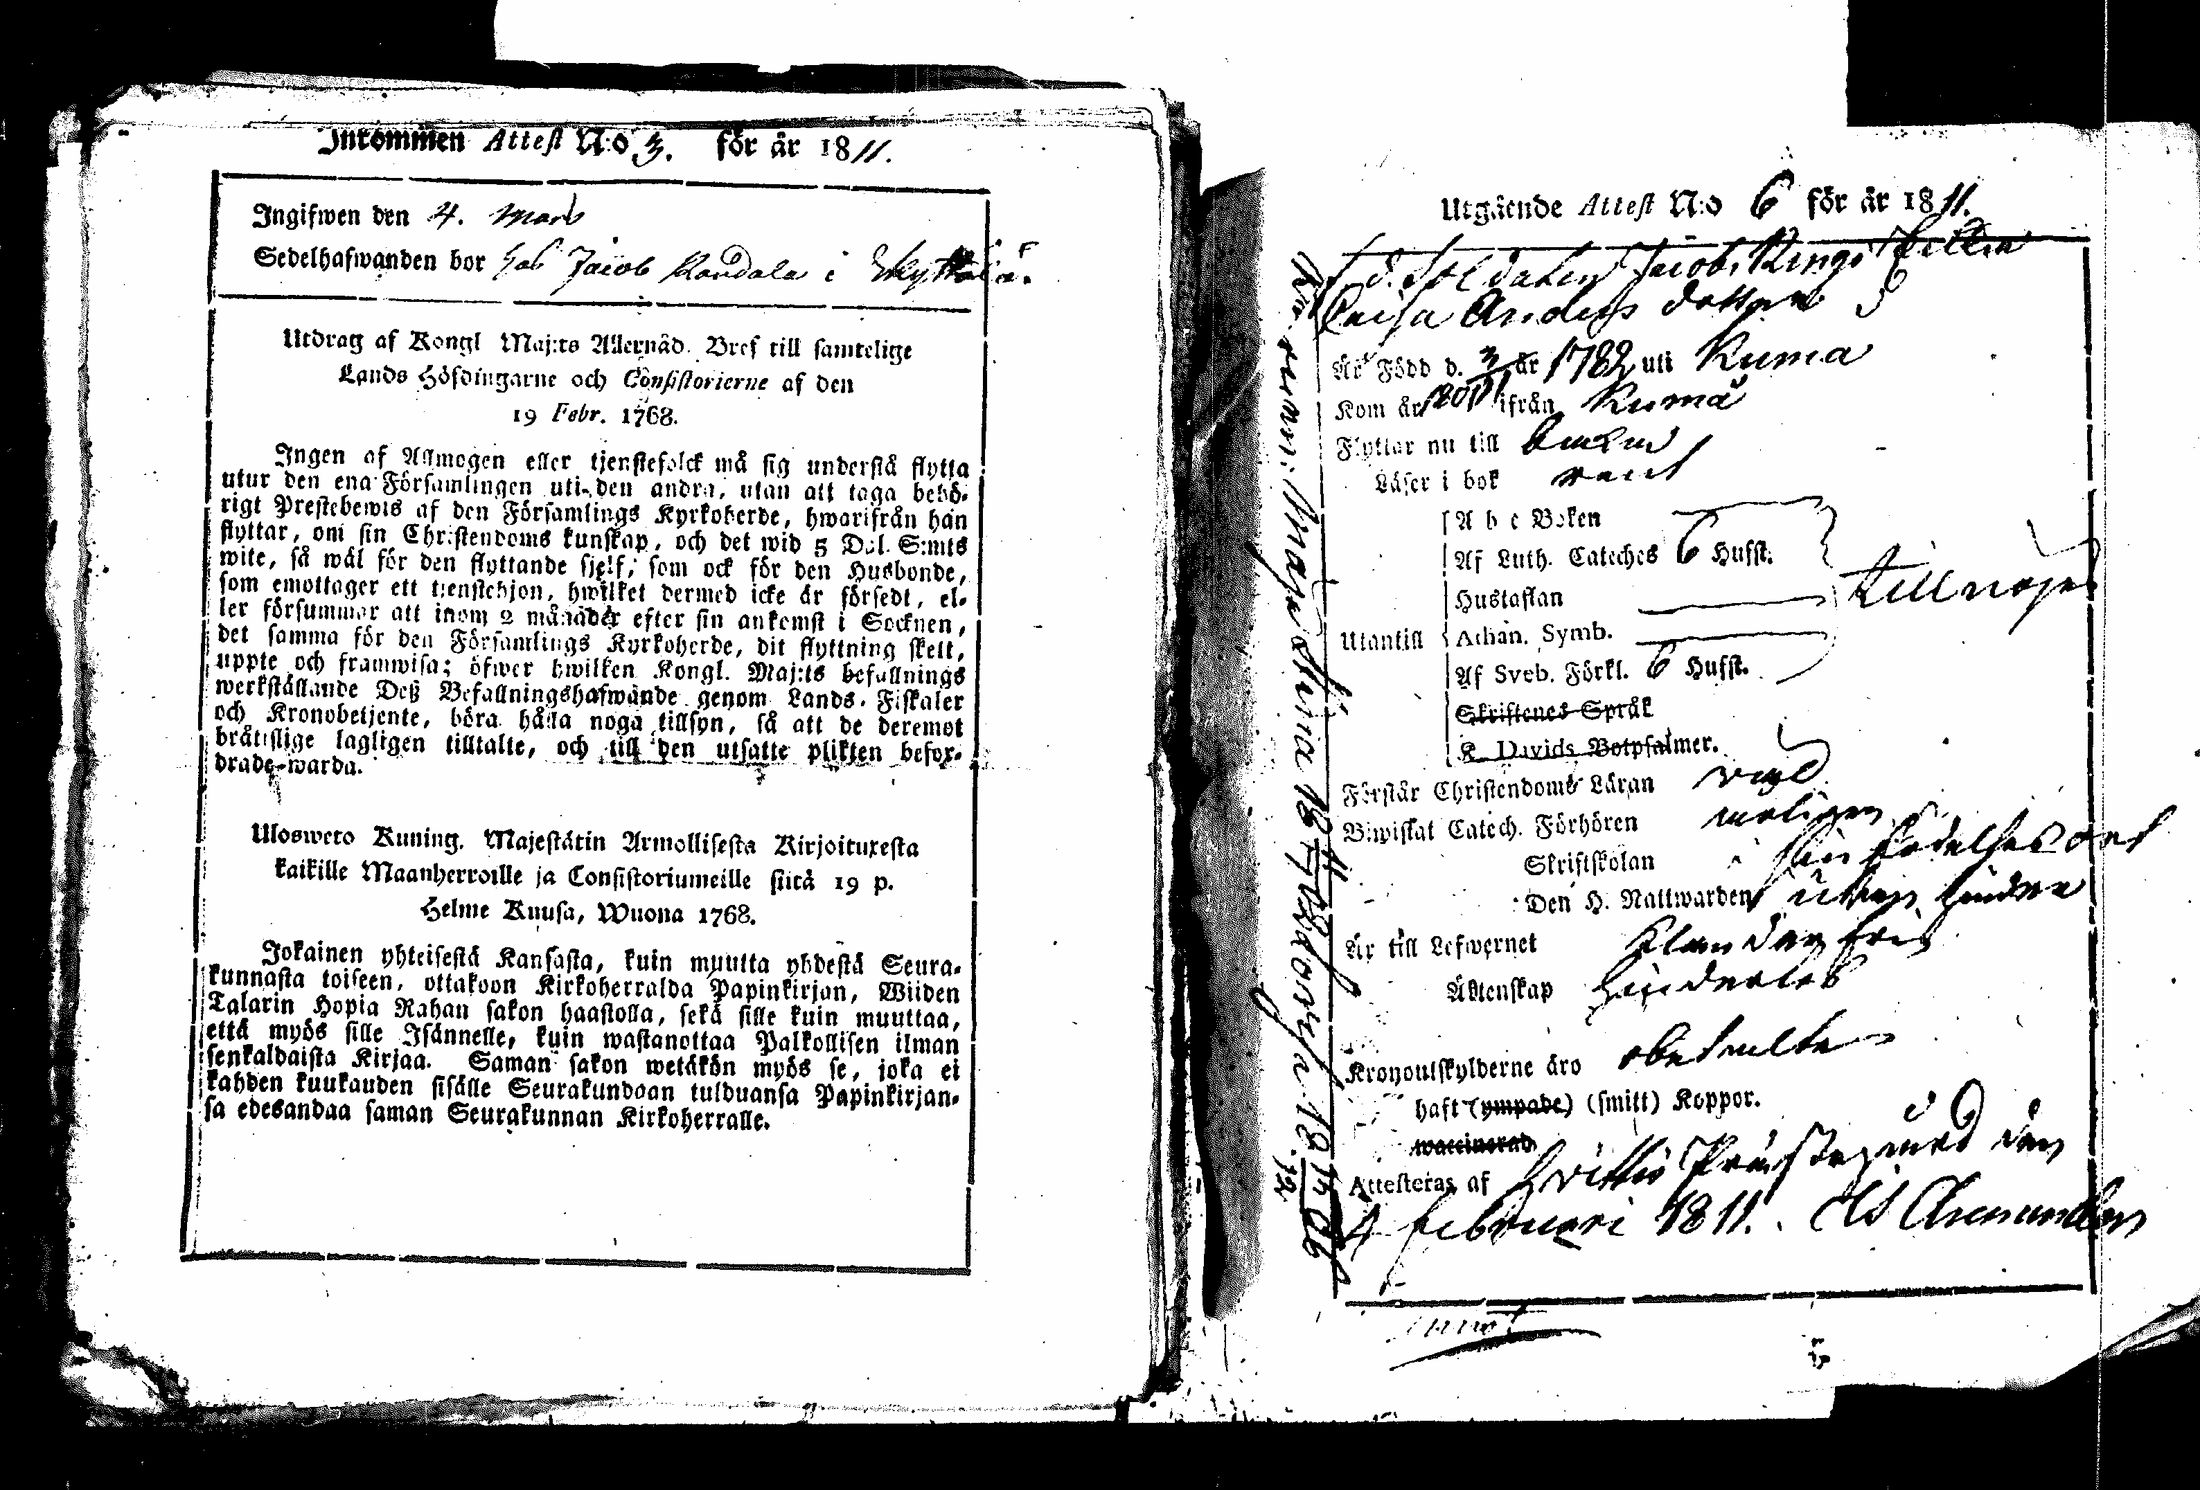 Inkommen Attest N:o 3. för är 1811.
Ingifwen den 4. Mars
Sedelhafwanden bor hos Jacob Kandola i
Utdrag af Kongl Maj:ts Allernåd. Bref till samtelige
Lands Höfdingarne och Consistorierne af den
19 Febr. 1768.
Ingen af Allmogen eller tjenstefolck må sig understå flytta
utur den ena Församlingen uti den andra, utan att taga behö-
rigt Prestebewis af den Församlings Kyrkoherde, hwarifrån han
flyttar, om sin Christendoms kunskap, och det wid 5 Dal. S:mts
wite, så wäl för den flyttande sjelf, som ock för den Husbonde,
som emottager ett tjenstehjon, hwilket dermed icke är försedt, el-
ler försummar att inom 2 månader efter sin ankomst i Socknen,
det samma för den Församlings Kyrkoherde, dit flyttning skett,
uppte och framwisa; öfwer hwilken Kongl. Maj:ts befallnings
werkställande Deß Befallningshafwande genom Lands-Fiskaler
och Kronobetjente, böra hålla noga tillsyn, så att de deremot
bråttslige lagligen tilltalte, och till den utsatte plikten befor-
drade warda.
Ulosweto Kuning. Majestätin Armollisesta Kirjoituxesta
kaikille Maanherroille ja Consistoriumeille siitä 19 p.
Helme Kuusa, Wuona 1768.
Jokainen yhteisestä Kansasta, kuin muutta yhdestä Seura-
kunnasta toiseen, ottakoon Kirkoherralda Papinkirjan, Wiiden
Talarin Hopia Rahan sakon haastolla, sekä sille kuin muuttaa,
että myös sille Isännelle, kuin wastanottaa Palkollisen ilman
senkaldaista Kirjaa. Saman sakon wetäkön myös se, joka ei
kahden kuukauden sisälle Seurakundaan tulduansa Papinkirjan-
sa edesandaa saman Seurakunnan Kirkoherralle.
Utgående Attest N:o 6 för är 1811.
f. d. Soldaten Jacob Rings
Caisa Anders dotter
Är Född d. 3 år 1782 uti Kumo
Kom år 1801 ifrån Kumo
Flyttar nu till
Läser i bok rent
A b c Boken
Af Luth. Cateches 6 Hufst.
Hustaflan
Utantill Athan. Symb.
Af Sveb. Förkl. 6 Hufst.
Skriftenes Språk
K. Davids Botpsalmer.
Förstår Christendoms Läran
Biwistat Catech. Förhören
Skriftskolan sin födelse ort
Den H. Nattwarden utan hinder
Är till Lefwernet klanderfri
Äktenskap hinderlös
Kronoutskylderne äro obetalte
haft (ympade) (smitt) Koppor.
waccinerad
Attesteras af Hvittis Prästegård den
4 februari 1811.